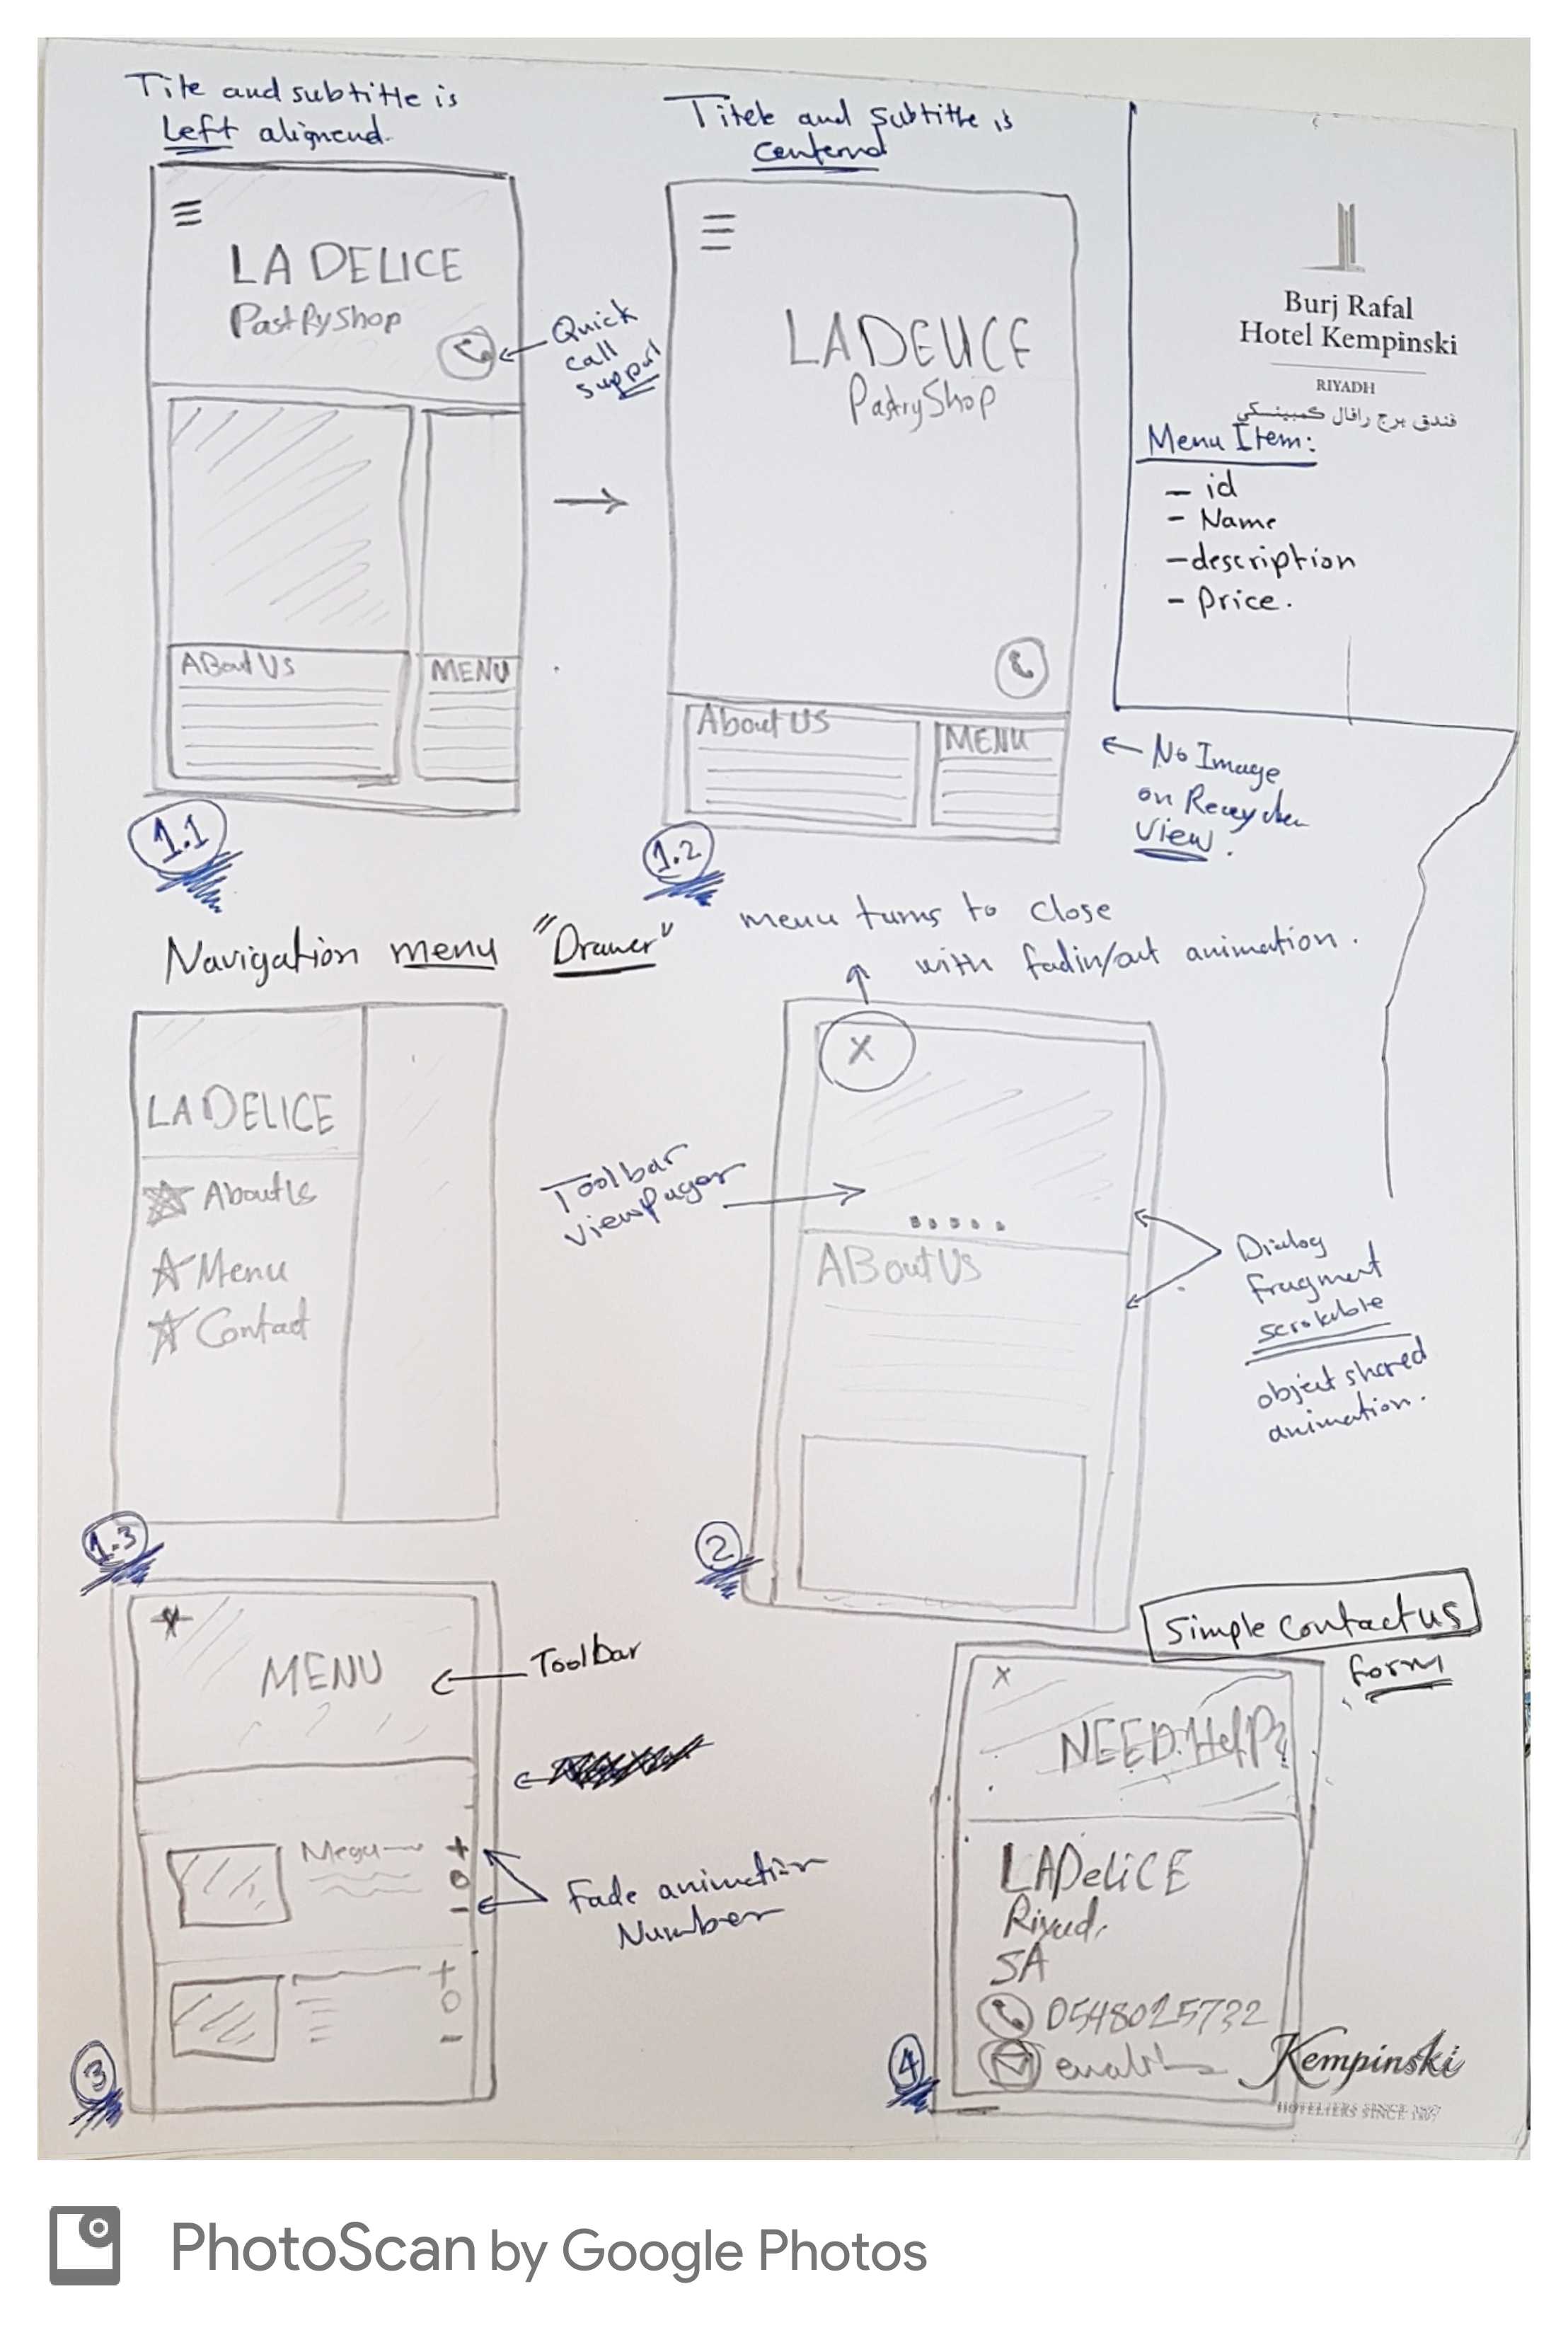 Tite and subtitle is
Left alignend.
LA DELICE
Pastry Shop
Quick
call
support
ABout Us
MENU
1.1
Titele and subtitle is
centernd
LA DELICE
Pastry Shop
About US
MENU
1.2
← No Image
on Recycler
View.
Burj Rafal
Hotel Kempinski
RIYADH
فندق برج رافال كمبينسكي
Menu Item:
- id
- Name
- description
- Price.
Navigation menu "Drawer"
LA DELICE
About Us
Menu
Contact
1.3
menu turns to close
with fadin/out animation.
X
Toolbar
viewpager
ABout Us
Dialog
fragment
scrollable
object shared
animation.
2
X
MENU
Toolbar
+
0
-
Fade animation
Number
+
0
-
3
Simple contact us
form
X
NEED HelP?
LA DeliCE
SA
0548025732
4
Kempinski
HOTELIERS SINCE 1897
PhotoScan by Google Photos